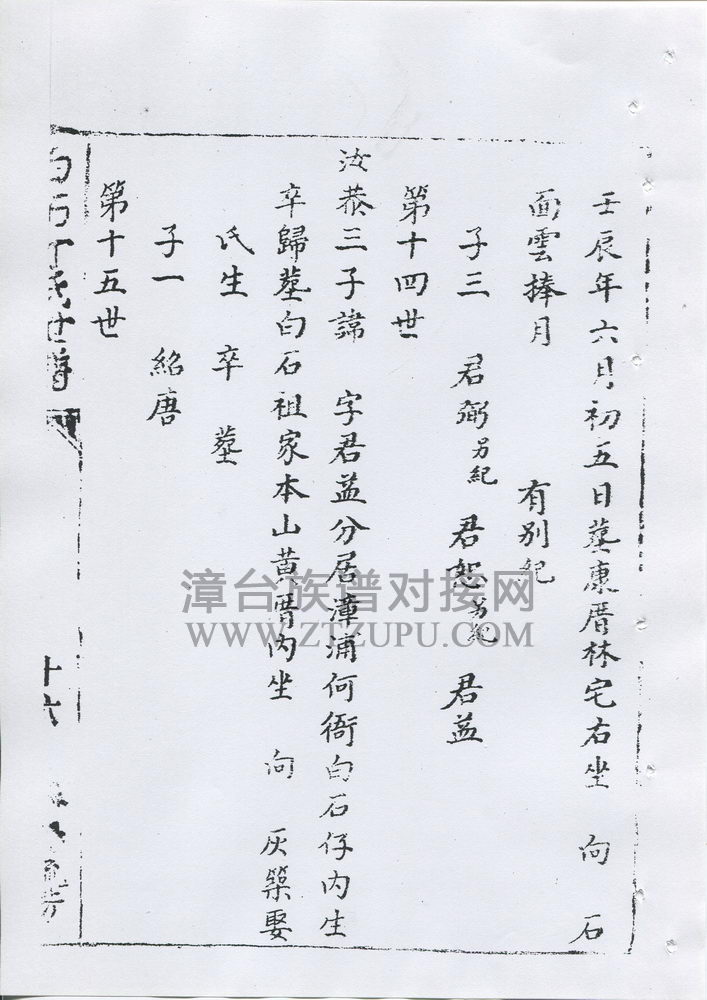 壬辰年六月初五日葬康厝林宅右坐 向 石
面雲捧月 有別紀
子三 君弼另紀 君恕另紀 君益
第十四世
汝恭三子諱 字君益分居漳浦何衙白石仔内生
卒歸塟白石祖家本山黄厝内坐 向 灰築娶
氏生 卒 塟
子一 紹唐
第十五世
十六
漳台族谱对接网
WWW.ZTZUPU.COM